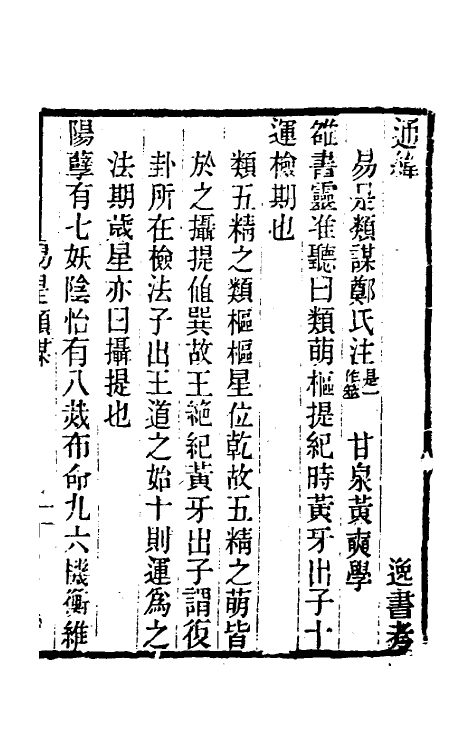 通緯　逸書考
易是類謀鄭氏注是一作筮　甘泉黃奭學
雒書靈准聽曰類萌樞提紀時黃牙出子十
運檢期也
類五精之類樞樞星位乾故五精之萌皆
於之攝提値巽故王絶紀黃牙出子謂復
卦所在檢法子出王道之始十則運爲之
法期歲星亦曰攝提也
陽孽有七妖陰怡有八烖布命九六機衡維
易是類謀